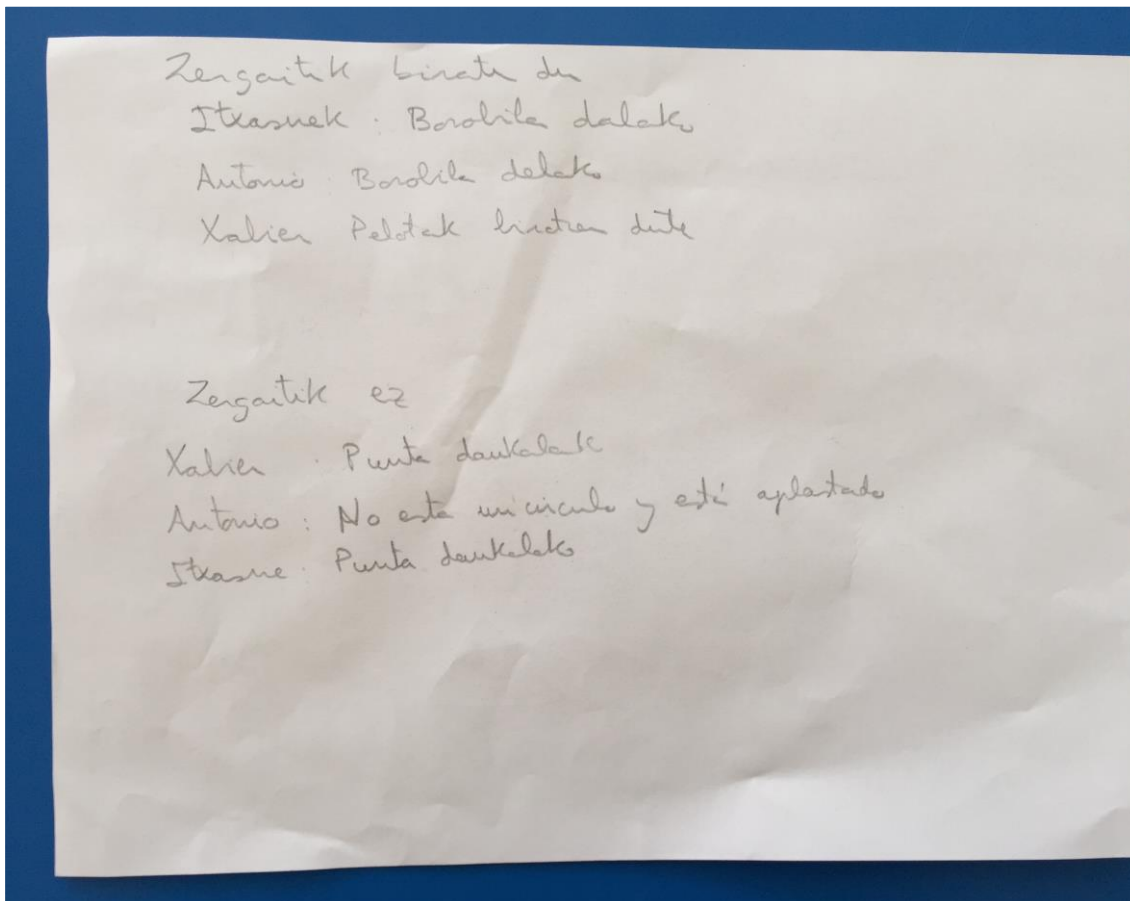 Zergaitik biratu du
Itxasnek : Borobila dalako
Antonio : Borobila delako
Xabier Pelotak biratzen dute
Zergaitik ez
Xabier . Punta daukalako
Antonio : No esta un circulo y está aplastado
Itxasne . Punta daukalako